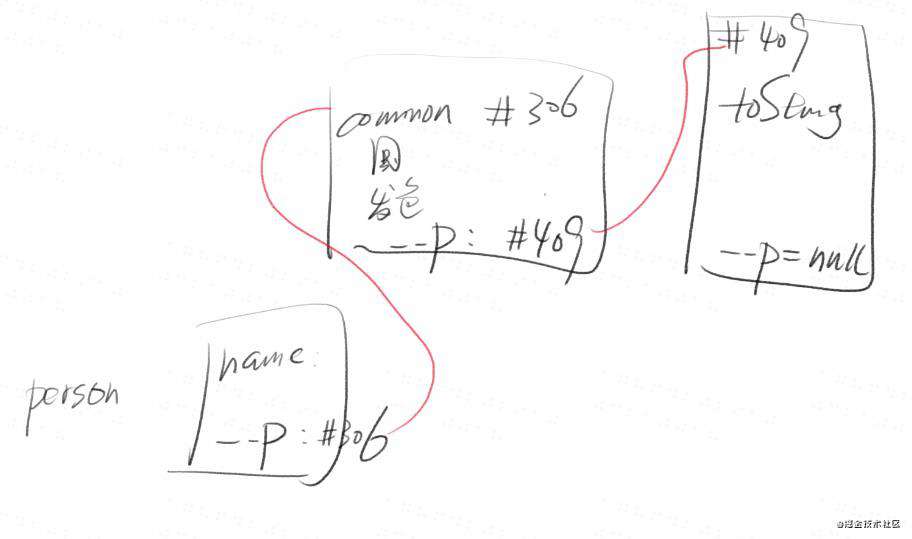 person
name:
--p:#306
common #306
发色
---p: #409
#409
toString
--p=null
@掘金技术社区